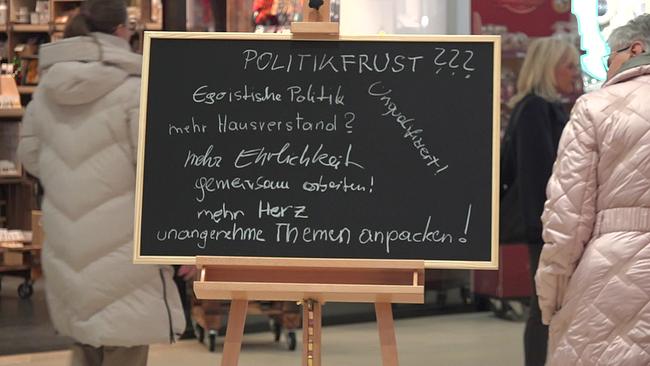 POLITIKFRUST ???
Egoistische Politik
Unqualifiziert!
mehr Hausverstand?
mehr Ehrlichkeit
gemeinsam arbeiten!
mehr Herz
unangenehme Themen anpacken!